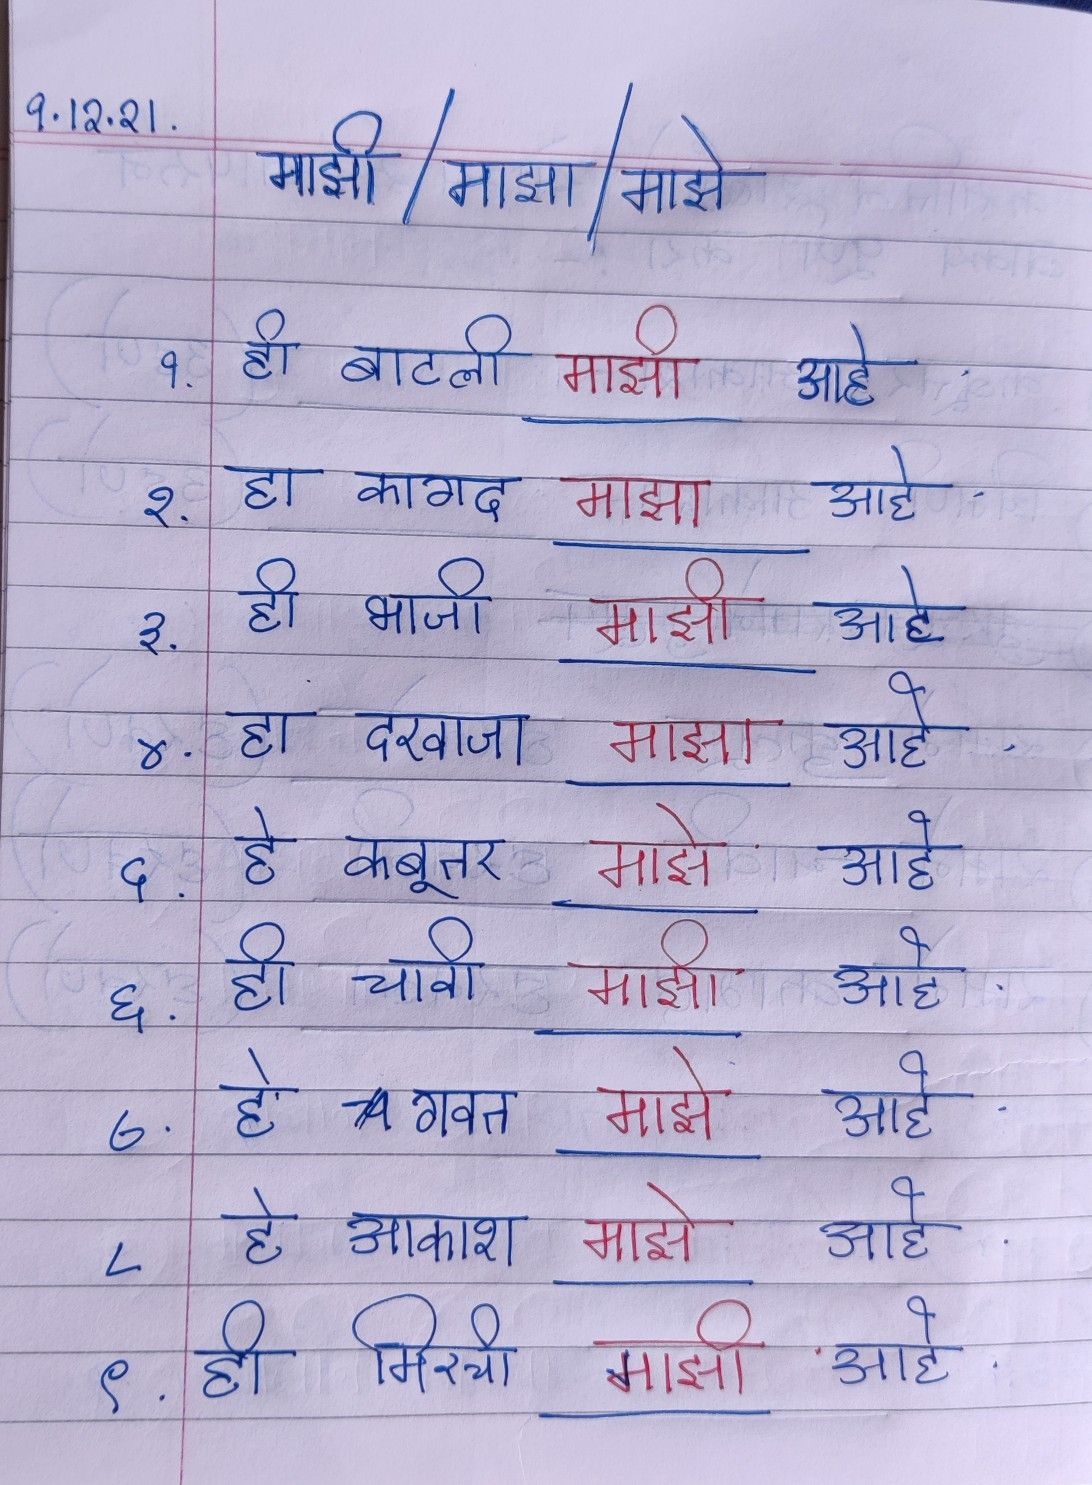 १.१२.२१.
माझी / माझा / माझे
१. ही बाटली माझी आहे.
२. हा कागद माझा आहे.
३. ही भाजी माझी आहे
४. हा दरवाजा माझा आहे.
५. हे कबूतर माझे आहे
६. ही चावी माझी आहे.
७. हे गवत माझे आहे.
८ हे आकाश माझे आहे.
९. ही मिरची माझी आहे.